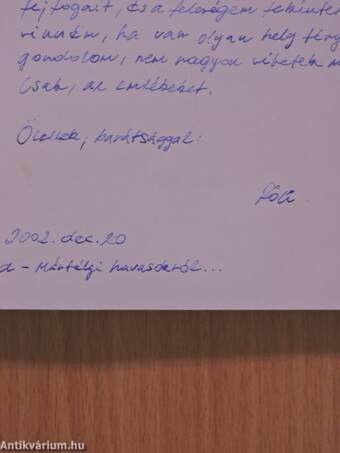 fejfogait, és a feleségem
vinném, ha van olyan hely
gondolom, nem nagyon vihetek
Csak, az emlékeket.
Ölellek, barátsággal:
2002. dec. 20
- Mártélyi havasokról...
Antikvárium.hu